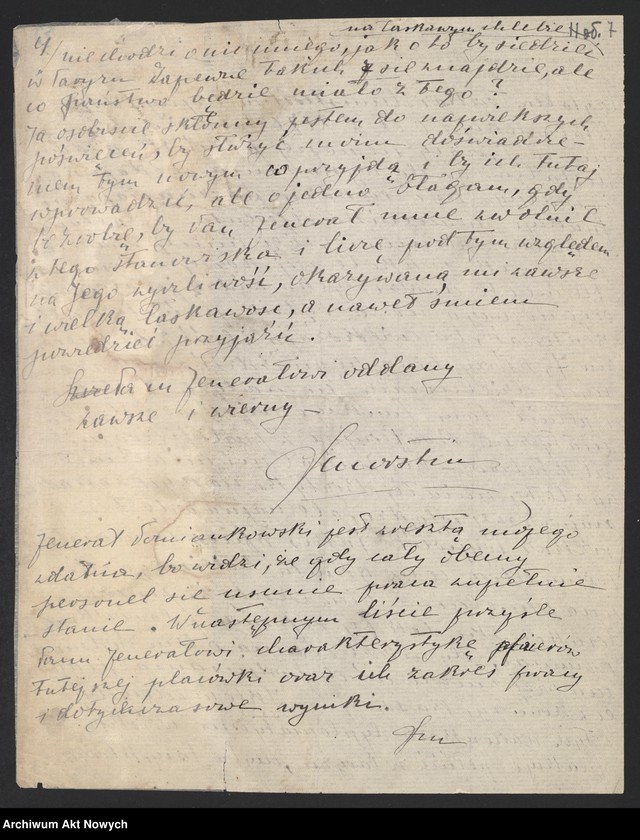 na łaskawym chlebie
II об. 7
4/ nie chodzi o nic innego, jak o to by siedzieli
w Paryżu. Zapewne takich się znajdzie, ale
co Państwo będzie miało z tego?
Ja osobiście skłonny jestem do największych
poświęceń, by służyć moim doświadcze-
niem tym nowym co przyjdą i by ich tutaj
wprowadzić, ale o jedno błagam, gdy
to zrobię, by Pan Jenerał mnie zwolnił
z tego stanowiska i liczę pod tym względem
na Jego życzliwość, okazywaną mi zawsze
i wielką łaskawość, a nawet śmiem
powiedzieć przyjaźń.
Panu Jenerałowi oddany
zawsze i wierny –
Jenerał Pomiankowski jest zresztą mojego
zdania, bo widzi, że gdy cały obecny
personel się usunie praca zupełnie
stanie. W następnym liście przyślę
Panu Jenerałowi charakterystykę oficerów
tutejszej placówki oraz ich zakres pracy
i dotychczasowe wyniki.
Archiwum Akt Nowych